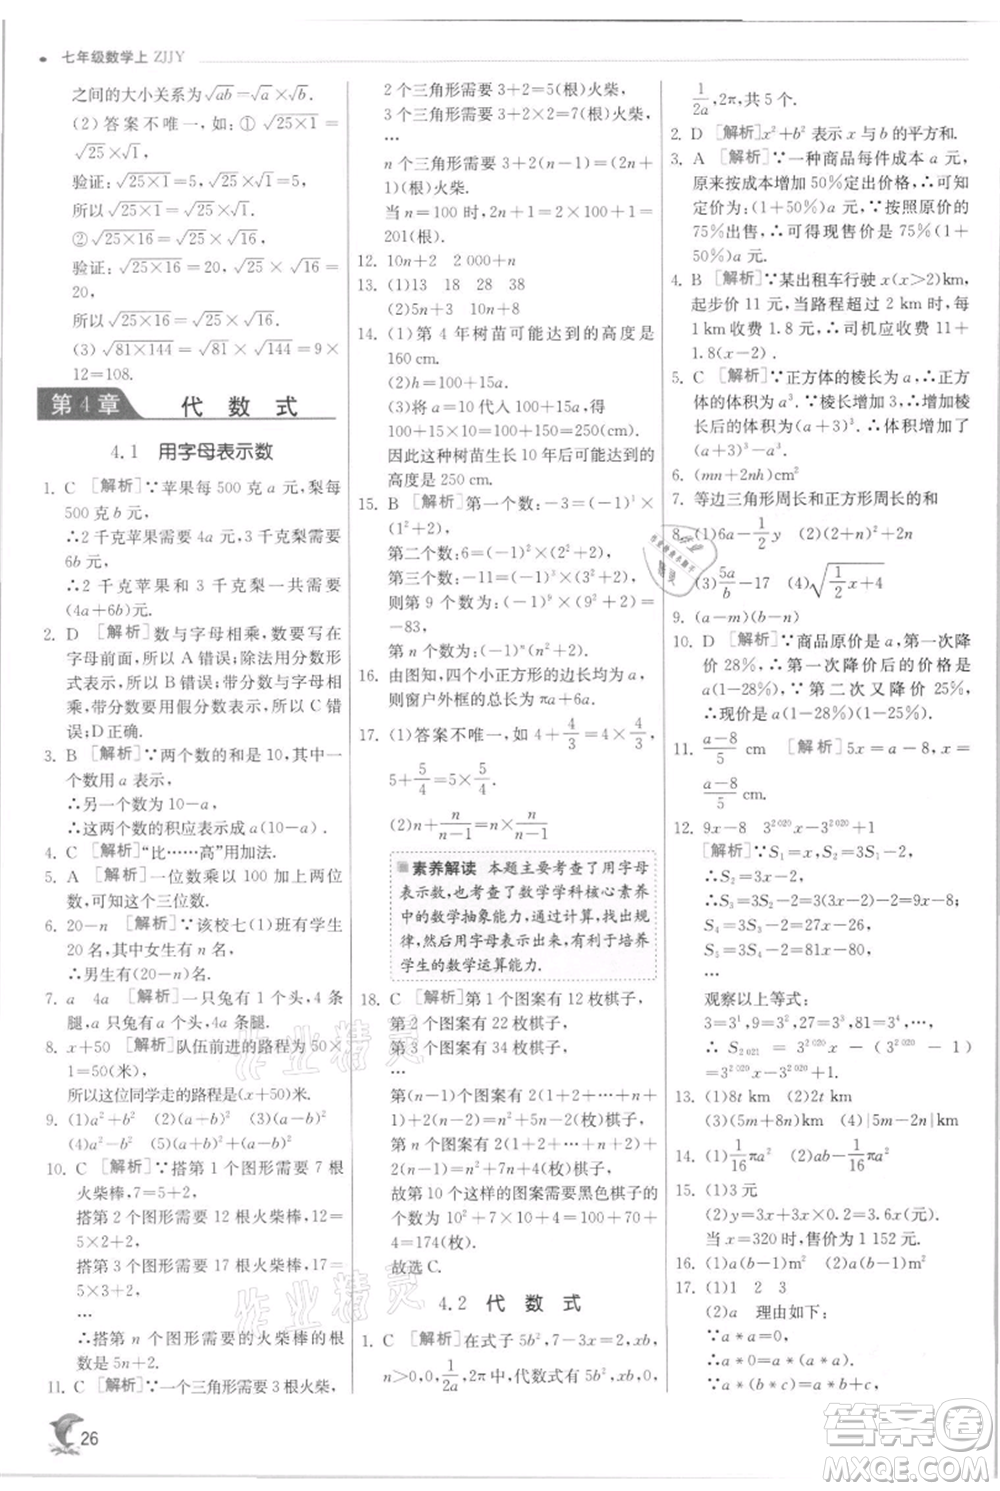 七年级数学上 ZJJY
之间的大小关系为√ab=√a×√b.
(2)答案不唯一,如:①√(25×1)=
√25×√1,
验证:√(25×1)=5,√25×√1=5,
所以√(25×1)=√25×√1.
②√(25×16)=√25×√16,
验证:√(25×16)=20,√25×√16=
20,
所以√(25×16)=√25×√16.
(3)√(81×144)=√81×√144=9×
12=108.
第4章 代数式
4.1 用字母表示数
1. C [解析]∵苹果每500克a元,梨每
500克b元,
∴2千克苹果需要4a元,2千克梨
需要6b元,
∴2千克苹果和3千克梨一共需
(4a+6b)元.
2. D [解析]数与字母相乘,数要写在
字母前面,所以A错误;除法用分数形
式表示,所以B错误;带分数与字母相
乘,带分数要用假分数表示,所以C错
误;D正确.
3. B [解析]∵两个数的和是10,其中一
个数用a表示,
∴另一个数为10-a,
∴这两个数的积应表示成a(10-a).
4. C [解析]“比……高”用加法.
5. A [解析]一位数乘100加上两位
数,可知这个三位数.
6. 20-n [解析]∵该校七(1)班有学生
20名,其中女生有n名,
∴男生有(20-n)名.
7. a 4a [解析]一只兔有1个头,4条
腿,a只兔有a个头,4a条腿.
8. x+50 [解析]队伍前进的路程为50×
1=50(米),
所以这位同学走的路程是(x+50)米.
9. (1)a²+b² (2)(a+b)² (3)(ab)²
(4)a²-b² (5)(a+b)(a-b)
10. C [解析]∵搭第1个图形需要7根
火柴棒,7=5+2,
搭第2个图形需要12根火柴棒,12=
5×2+2,
搭第3个图形需要17根火柴棒,17=
5×3+2,
…
∴搭第n个图形需要的火柴棒的根
数是5n+2.
11. C [解析]∵一个三角形需要3根火柴,
26
2个三角形需要3+2=5(根)火柴,
3个三角形需要3+2×2=7(根)火柴,
…
n个三角形需要3+2(n-1)=(2n+
1)(根)火柴.
当n=100时,2n+1=2×100+1=
201(根).
12. 10n+2 2 000+n
13. (1)13 18 28 38
(2)5n+3 10n+8
14. (1)第4年树苗可能达到的高度是
160 cm.
(2)h=100+15a.
(3)将a=10代入100+15a,得
100+15a=100+15×10=250.
因此这种树苗生长10年后可能达到的
高度是250 cm.
15. B [解析]第一个数:-3=(-1)¹×
(1²+2),
第二个数:6=(-1)²×(2²+2),
第三个数:-11=(-1)³×(3²+2),
则第9个数为(-1)⁹×(9²+2)=
-83,
第n个数为(-1)ⁿ(n²+2).
16. 由图知,四个小正方形的边长为a,
则窗户外框的总长为πa+6a.
17. (1)答案不唯一,如4+4/3=4×4/3,
5+5/4=5×5/4.
(2)n+n/(n-1)=n×n/(n-1).
素养解读 本题主要考查了用字母
表示数,也考查了数学学科核心素养
中的数学抽象能力,通过计算,找出规
律,然后用字母表示出来,有利于培养
学生的数学运算能力.
18. C [解析]第1个图案有12枚棋子,
第2个图案有22枚棋子,
第3个图案有34枚棋子,
…
第(n-1)个图案有2(1+2+…+n+
1)+2(n-1)=n²+5n-2(枚)棋子,
第n个图案有2(1+2+…+n+2)+
2(n-1)=n²+7n+4枚棋子,
故第10个这样的图案需要黑色棋子的
个数为10²+7×10+4=100+70+
4=174(枚).
故选C.
4.2 代数式
1. C [解析]在式子5b²,7-3x=2,a,
n>1,0,1/2a,2π,a²+b²中,代数式有5b²,a,0,
1/2a,2π,共5个.
2. D [解析]x²+b²表示x与b的平方和.
3. A [解析]∵一种商品每件成本a元,
原来按成本增加50%定出价格,∴可知
定价为:(1+50%)a元.∵按照原价的
75%出售,∴现售价是75%(1+
50%)a元.
4. B [解析]∵某出租车行驶x(x>2)km,
起步价11元,当路程超过2 km时,每
1km收费1.8元,∴司机应收费11+
1.8(x-2)元.
5. C [解析]∵正方体的棱长为a,∴正方
体的体积为a³.∵棱长增加3,∴新正方
体的体积为(a+3)³.∴体积增加了
(a+3)³-a³.
6. (mn+2nh)cm²
7. 等边三角形周长和正方形周长的和
8. (1)6a-1/2y (2)(a+b)²+b²
(3)5a/b-17 (4)√(1/2x+4)
9. (a-m)(b-n)
10. D [解析]∵商品原价是a,第一次降
价28%,∴第一次降价后的价格是
(1-28%)a.∵第二次又降价25%,
∴现价是a(1-28%)(1-25%)元.
11. (a-8)/5 cm [解析]5x=a-8,x=
(a-8)/5 cm.
12. 9x-8 3²⁰²⁰-x-3²⁰²⁰+1
[解析]∵S₁=x,
∴S₂=3S₁-2=3x-2,
∴S₃=3S₂-2=9x-8,
S₄=3S₃-2=27x-26,
S₅=3S₄-2=81x-80,
…
观察以上等式:
3=3¹,9=3²,27=3³,81=3⁴,
∴S₂₀₂₁=3²⁰²⁰x-(3²⁰²⁰-1)=
3²⁰²⁰x-3²⁰²⁰+1.
13. (1)8t km (2)2t km
(3)(5m+8n)km (4)|5m-2n|km
14. (1)1/16πa² (2)ab-1/16πa²
15. (1)3元
(2)y=3x+0.2×3x=3.6x(元).
当x=320时,售价为1 152元.
16. (1)ab m² (2)(a-1)b m²
17. (1)1 2 3
(2)a 理由如下:
∵a*a=a,
∴a*a*a=a*a=a,
∴a*a*a*…*a=a.
作业精灵
作业精灵
答案圈
MXQE.COM